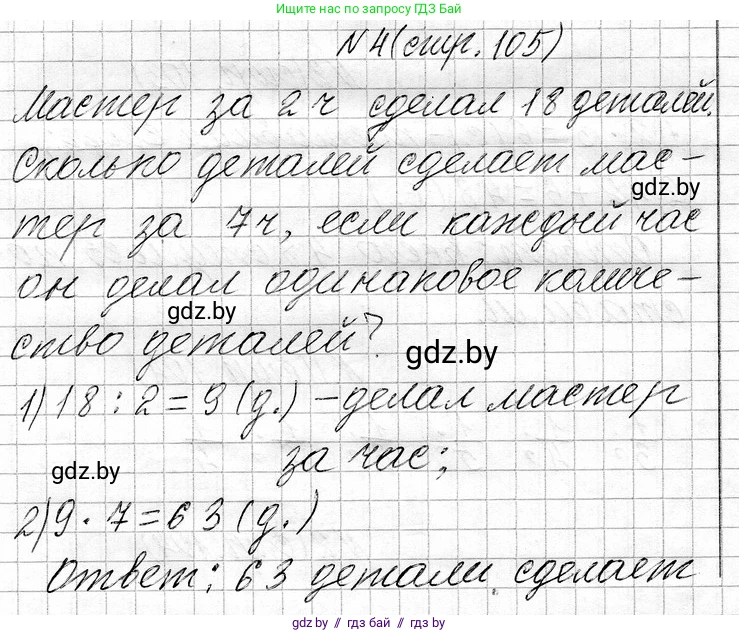 Ищите нас по запросу ГДЗ Бай
№4 (стр. 105)
Мастер за 2 ч сделал 18 деталей.
Сколько деталей сделает мас-
gdz.by
тер за 7 ч, если каждый час
он делал одинаковое количе-
gdz.by
ство деталей?
gdz.by
1) 18 : 2 = 9 (д.) – делал мастер
за час;
gdz.by
2) 9 · 7 = 63 (д.)
Ответ: 63 детали сделает
gdz.by // гдз бай // гдз by